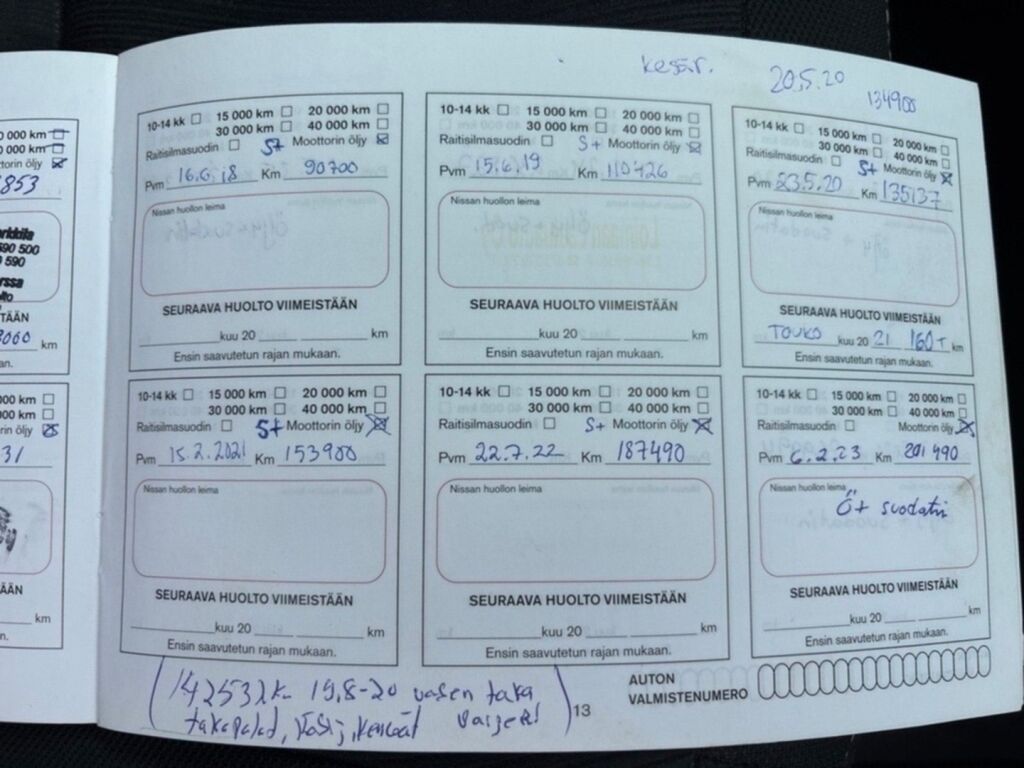 kesär. 20.5.20
134900
0 000 km
000 km
ttorin öljy
853
rkkila
590 500
590
rssa
lto
TÄÄN
3060 km
an.
000 km
000 km
orin öljy
31
ÄÄN
km
n.
10-14 kk 15 000 km 20 000 km
30 000 km 40 000 km
Raitisilmasuodin S+ Moottorin öljy
Pvm 16.6.18 Km 90700
Nissan huollon leima
SEURAAVA HUOLTO VIIMEISTÄÄN
kuu 20 km
Ensin saavutetun rajan mukaan.
10-14 kk 15 000 km 20 000 km
30 000 km 40 000 km
Raitisilmasuodin S+ Moottorin öljy
Pvm 15.6.19 Km 110426
Nissan huollon leima
SEURAAVA HUOLTO VIIMEISTÄÄN
kuu 20 km
Ensin saavutetun rajan mukaan.
10-14 kk 15 000 km 20 000 km
30 000 km 40 000 km
Raitisilmasuodin S+ Moottorin öljy
Pvm 23.5.20 Km 135137
Nissan huollon leima
SEURAAVA HUOLTO VIIMEISTÄÄN
TOUKO kuu 20 21 160T km
Ensin saavutetun rajan mukaan.
10-14 kk 15 000 km 20 000 km
30 000 km 40 000 km
Raitisilmasuodin S+ Moottorin öljy
Pvm 15.2.2021 Km 153900
Nissan huollon leima
SEURAAVA HUOLTO VIIMEISTÄÄN
kuu 20 km
Ensin saavutetun rajan mukaan.
10-14 kk 15 000 km 20 000 km
30 000 km 40 000 km
Raitisilmasuodin S+ Moottorin öljy
Pvm 22.7.22 Km 187490
Nissan huollon leima
SEURAAVA HUOLTO VIIMEISTÄÄN
kuu 20 km
Ensin saavutetun rajan mukaan.
10-14 kk 15 000 km 20 000 km
30 000 km 40 000 km
Raitisilmasuodin Moottorin öljy
Pvm 6.2.23 Km 201 490
Nissan huollon leima
Ö+ suodatin
SEURAAVA HUOLTO VIIMEISTÄÄN
kuu 20 km
Ensin saavutetun rajan mukaan.
(142532k- 19.8-20 vasen taka
takapalat, käsij, kengät vaijeri)
13
AUTON
VALMISTENUMERO